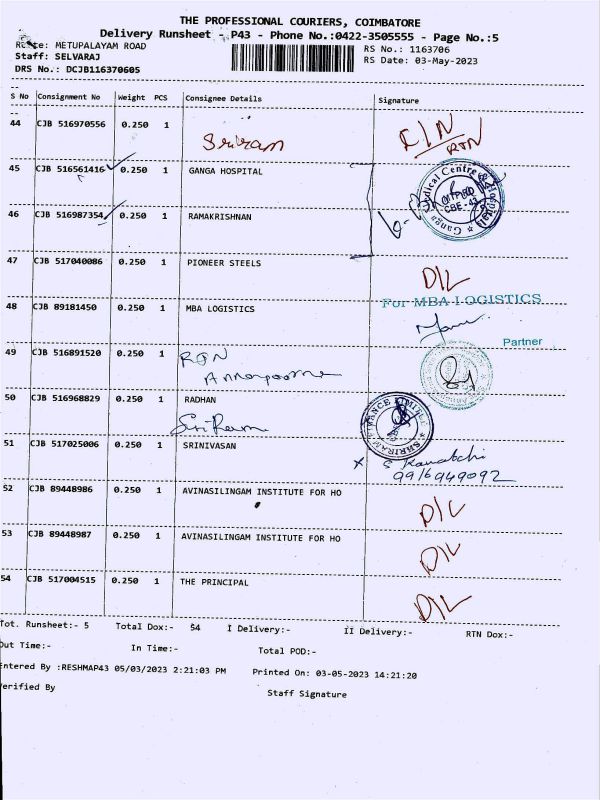 THE PROFESSIONAL COURIERS, COIMBATORE
Delivery Runsheet - P43 - Phone No.:0422-3505555 - Page No.:5
Route: METUPALAYAM ROAD
RS No.: 1163706
Staff: SELVARAJ
RS Date: 03-May-2023
DRS No.: DCJB116370605
S No Consignment No Weight PCS Consignee Details Signature
44 CJB 516970556 0.250 1 Sriram RTN
45 CJB 516561416 0.250 1 GANGA HOSPITAL
46 CJB 516987354 0.250 1 RAMAKRISHNAN
47 CJB 517040086 0.250 1 PIONEER STEELS D/L
48 CJB 89181450 0.250 1 MBA LOGISTICS For MBA LOGISTICS
Partner
49 CJB 516891520 0.250 1
50 CJB 516968829 0.250 1 RADHAN
51 CJB 517025006 0.250 1 SRINIVASAN
9916949092
52 CJB 89448986 0.250 1 AVINASILINGAM INSTITUTE FOR HO D/L
53 CJB 89448987 0.250 1 AVINASILINGAM INSTITUTE FOR HO D/L
54 CJB 517004515 0.250 1 THE PRINCIPAL D/L
Tot. Runsheet:- 5 Total Dox:- 54 I Delivery:- II Delivery:- RTN Dox:-
Out Time:- In Time:- Total POD:-
Entered By :RESHMAP43 05/03/2023 2:21:03 PM Printed On: 03-05-2023 14:21:20
Verified By Staff Signature